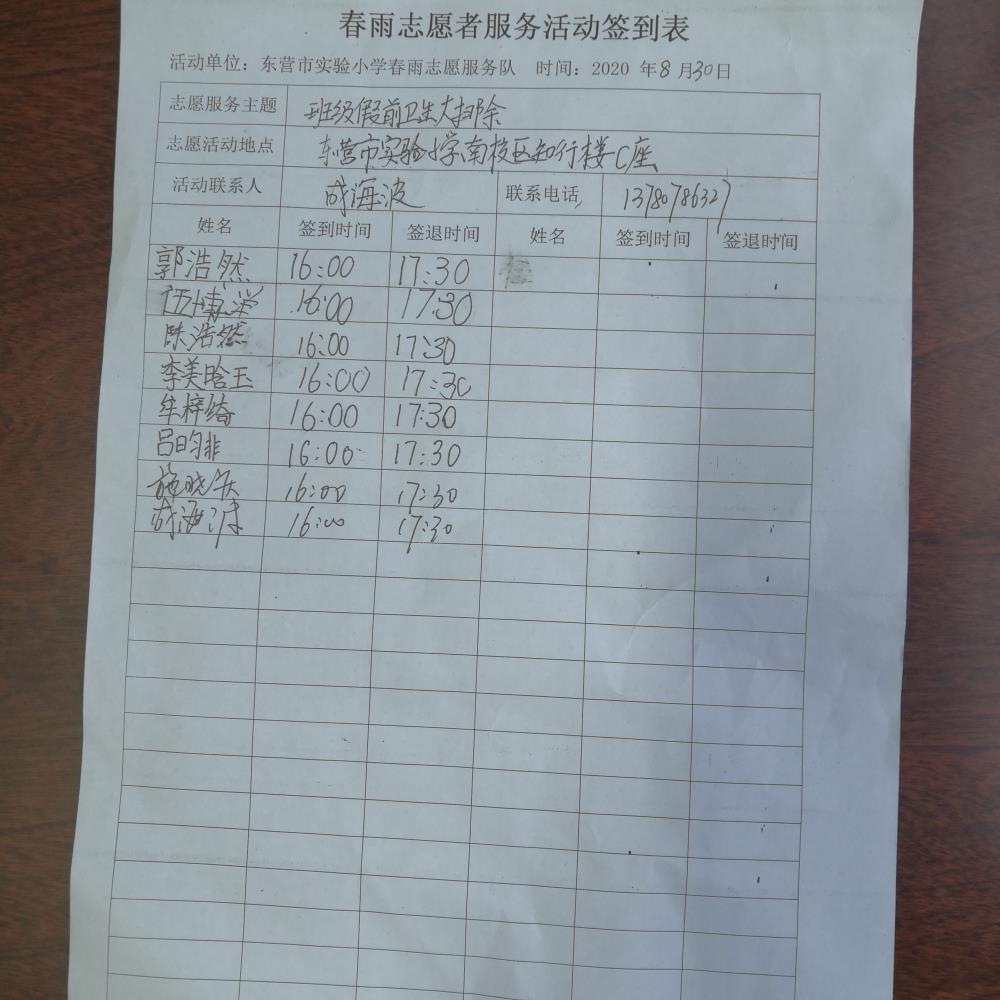 春雨志愿者服务活动签到表
活动单位：东营市实验小学春雨志愿服务队 时间：2020 年8月30日
志愿服务主题 班级假前卫生大扫除
志愿活动地点 东营市实验小学南校区知行楼C座
活动联系人 成海波 联系电话 13780786327
姓名 签到时间 签退时间 姓名 签到时间 签退时间
郭浩然 16:00 17:30
16:00 17:30
陈浩然 16:00 17:30
李美晗玉 16:00 17:30
牟梓绮 16:00 17:30
吕昀非 16:00 17:30
16:00 17:30
成海波 16:00 17:30